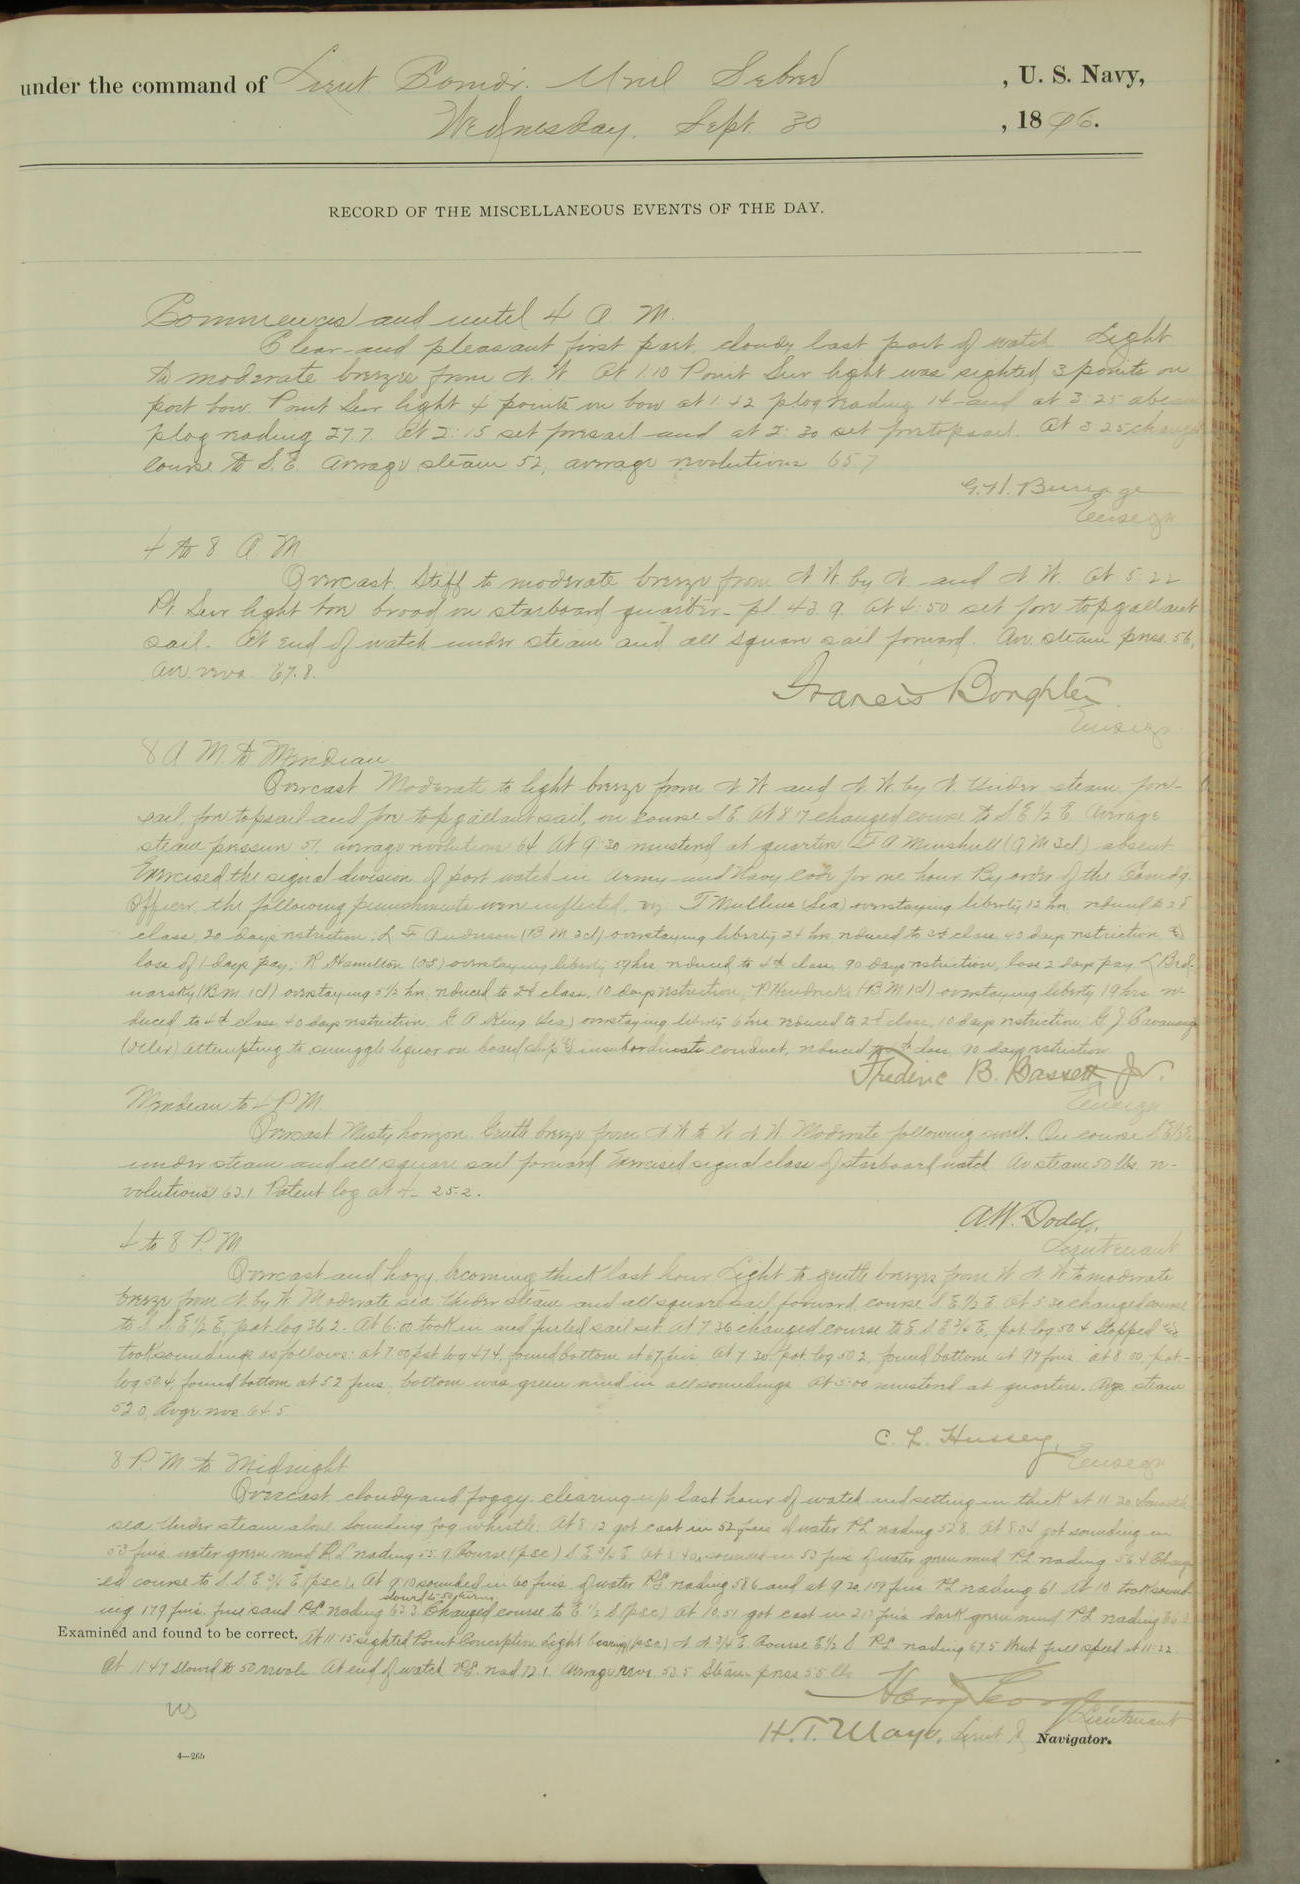 under the command of Lieut Comdr. Uriel Sebree , U. S. Navy,
Wednesday, Sept. 30 , 1896.
RECORD OF THE MISCELLANEOUS EVENTS OF THE DAY.
Commences and until 4 A M.
Clear and pleasant first part, cloudy last part of watch Light
to moderate breeze from N. W At 1.10 Point Sur light was sighted 3 points on
port bow. Point Sur light 4 points on bow at 1.42 plog reading 14 and at 3.25 abeam
plog reading 27.7. At 2:15 set foresail and at 2:30 set foretopsail. At 3 25 changed
course to S. E. Average steam 52, average revolutions 65.7
G. H. Burrage
Ensign
4 to 8 A M
Overcast. Stiff to moderate breeze from N W. by N. and N W. At 5.22
Pt Sur light bore broad on starboard quarter - pl 43.9. At 4.50 set fore topgallant
sail. At end of watch under steam and all square sail forward. Av. steam pres. 56,
av. revs. 67.8.
Francis Boughter
Ensign
8 A M. to Meridian
Overcast Moderate to light breeze from N W and N W. by N. Under steam, fore-
sail, fore topsail and fore topgallant sail, on course S E. At 8 07 changed course to S E ½ E. Average
steam pressure 51. average revolutions 64 At 9.30 mustered at quarters F A Minshull (G M 3cl) absent
Exercised the signal division of port watch in Army and Navy code for one hour By order of the Comdg.
Officer the following punishments were inflicted, viz T Mullens (Sea) overstaying liberty 12 hrs. reduced to 2d
class, 20 days restriction; L F Anderson (B M 2cl) overstaying liberty 24 hrs. reduced to 3d class 40 days restriction &
loss of 1 days pay; R Hamilton (OS) overstaying liberty 54 hrs reduced to 4th class, 90 days restriction, loss 2 days pay
(B.M. 1cl) overstaying 5½ hrs. reduced to 2d class, 10 days restriction, P Hendricks (B M 1cl) overstaying liberty 19 hrs re-
duced to 4th class 40 days restriction, G A King (Sea) overstaying liberty 6 hrs reduced to 2d class, 10 days restriction, G J Cavanaugh
(Oiler) attempting to smuggle liquor on board ship & insubordinate conduct, reduced to 4th class 90 days restriction
Frederic B. Bassett, Jr.
Ensign
Meridian to 4 P M.
Overcast Misty horizon Gentle breeze from N W to W N W Moderate following swell. On course S E½E
under steam and all square sail forward Exercised signal class of starboard watch Av steam 50 lbs. re-
volutions 63.1 Patent log at 4 - 25.2.
A. W. Dodd,
Lieutenant
4 to 8 P. M
Overcast and hazy, becoming thick last hour Light to gentle breezes from W N W to moderate
breeze from N. by W Moderate sea Under steam and all square sail forward, course S E ½ E. At 5 30 changed course
to S S E ½ E, pat. log 36 2. At 6:00 took in and furled sail set At 7 36 changed course to E S E ¾ E, pat. log 50 4 Stopped and
took soundings as follows: at 7.00 pat. log 47.4, found bottom at 67 fms At 7.30 pat. log 50 2, found bottom at 97 fms at 8.00 pat.-
log 50.4, found bottom at 52 fms, bottom was green mud in all soundings At 5:00 mustered at quarters. Avge steam
52.0, Avge. revs. 64.5
C. L. Hussey,
Ensign
8 P. M to Midnight
Overcast cloudy and foggy clearing up last hour of watch and setting in thick at 11 30 Smooth
sea Under steam alone Sounding fog whistle. At 8 12 got cast in 52 fms of water P.L reading 52 8. At 8:34 got sounding in
53 fms water green mud P.L reading 55.9 Course (psc) S. E ¾ E. in 53 fms of water green mud P.L reading 56.4 Chang-
ed course to S. S. E ¾ E (psc). At 9:10 sounded in 60 fms. of water PL reading 58 6 and at 9 30, 109 fms PL reading 61 At 10 took sound-
ing 179 fms. fine sand P.L reading 63 3 Changed course to E ½ S (psc) At 10.51 got cast in 217 fms dark green mud P.L reading
Examined and found to be correct. At 11.15 sighted Point Conception Light bearing (psc) N N ¾ E. Course E½ S P.L reading 67.5 Went full speed at 11.22
At 11 47 slowed to 50 revols At end of watch P.L. read 72 1. Average revs 53.5 Steam press 55 lbs
Lieutenant
H. T. Mayo, Lieut Navigator.
4—266